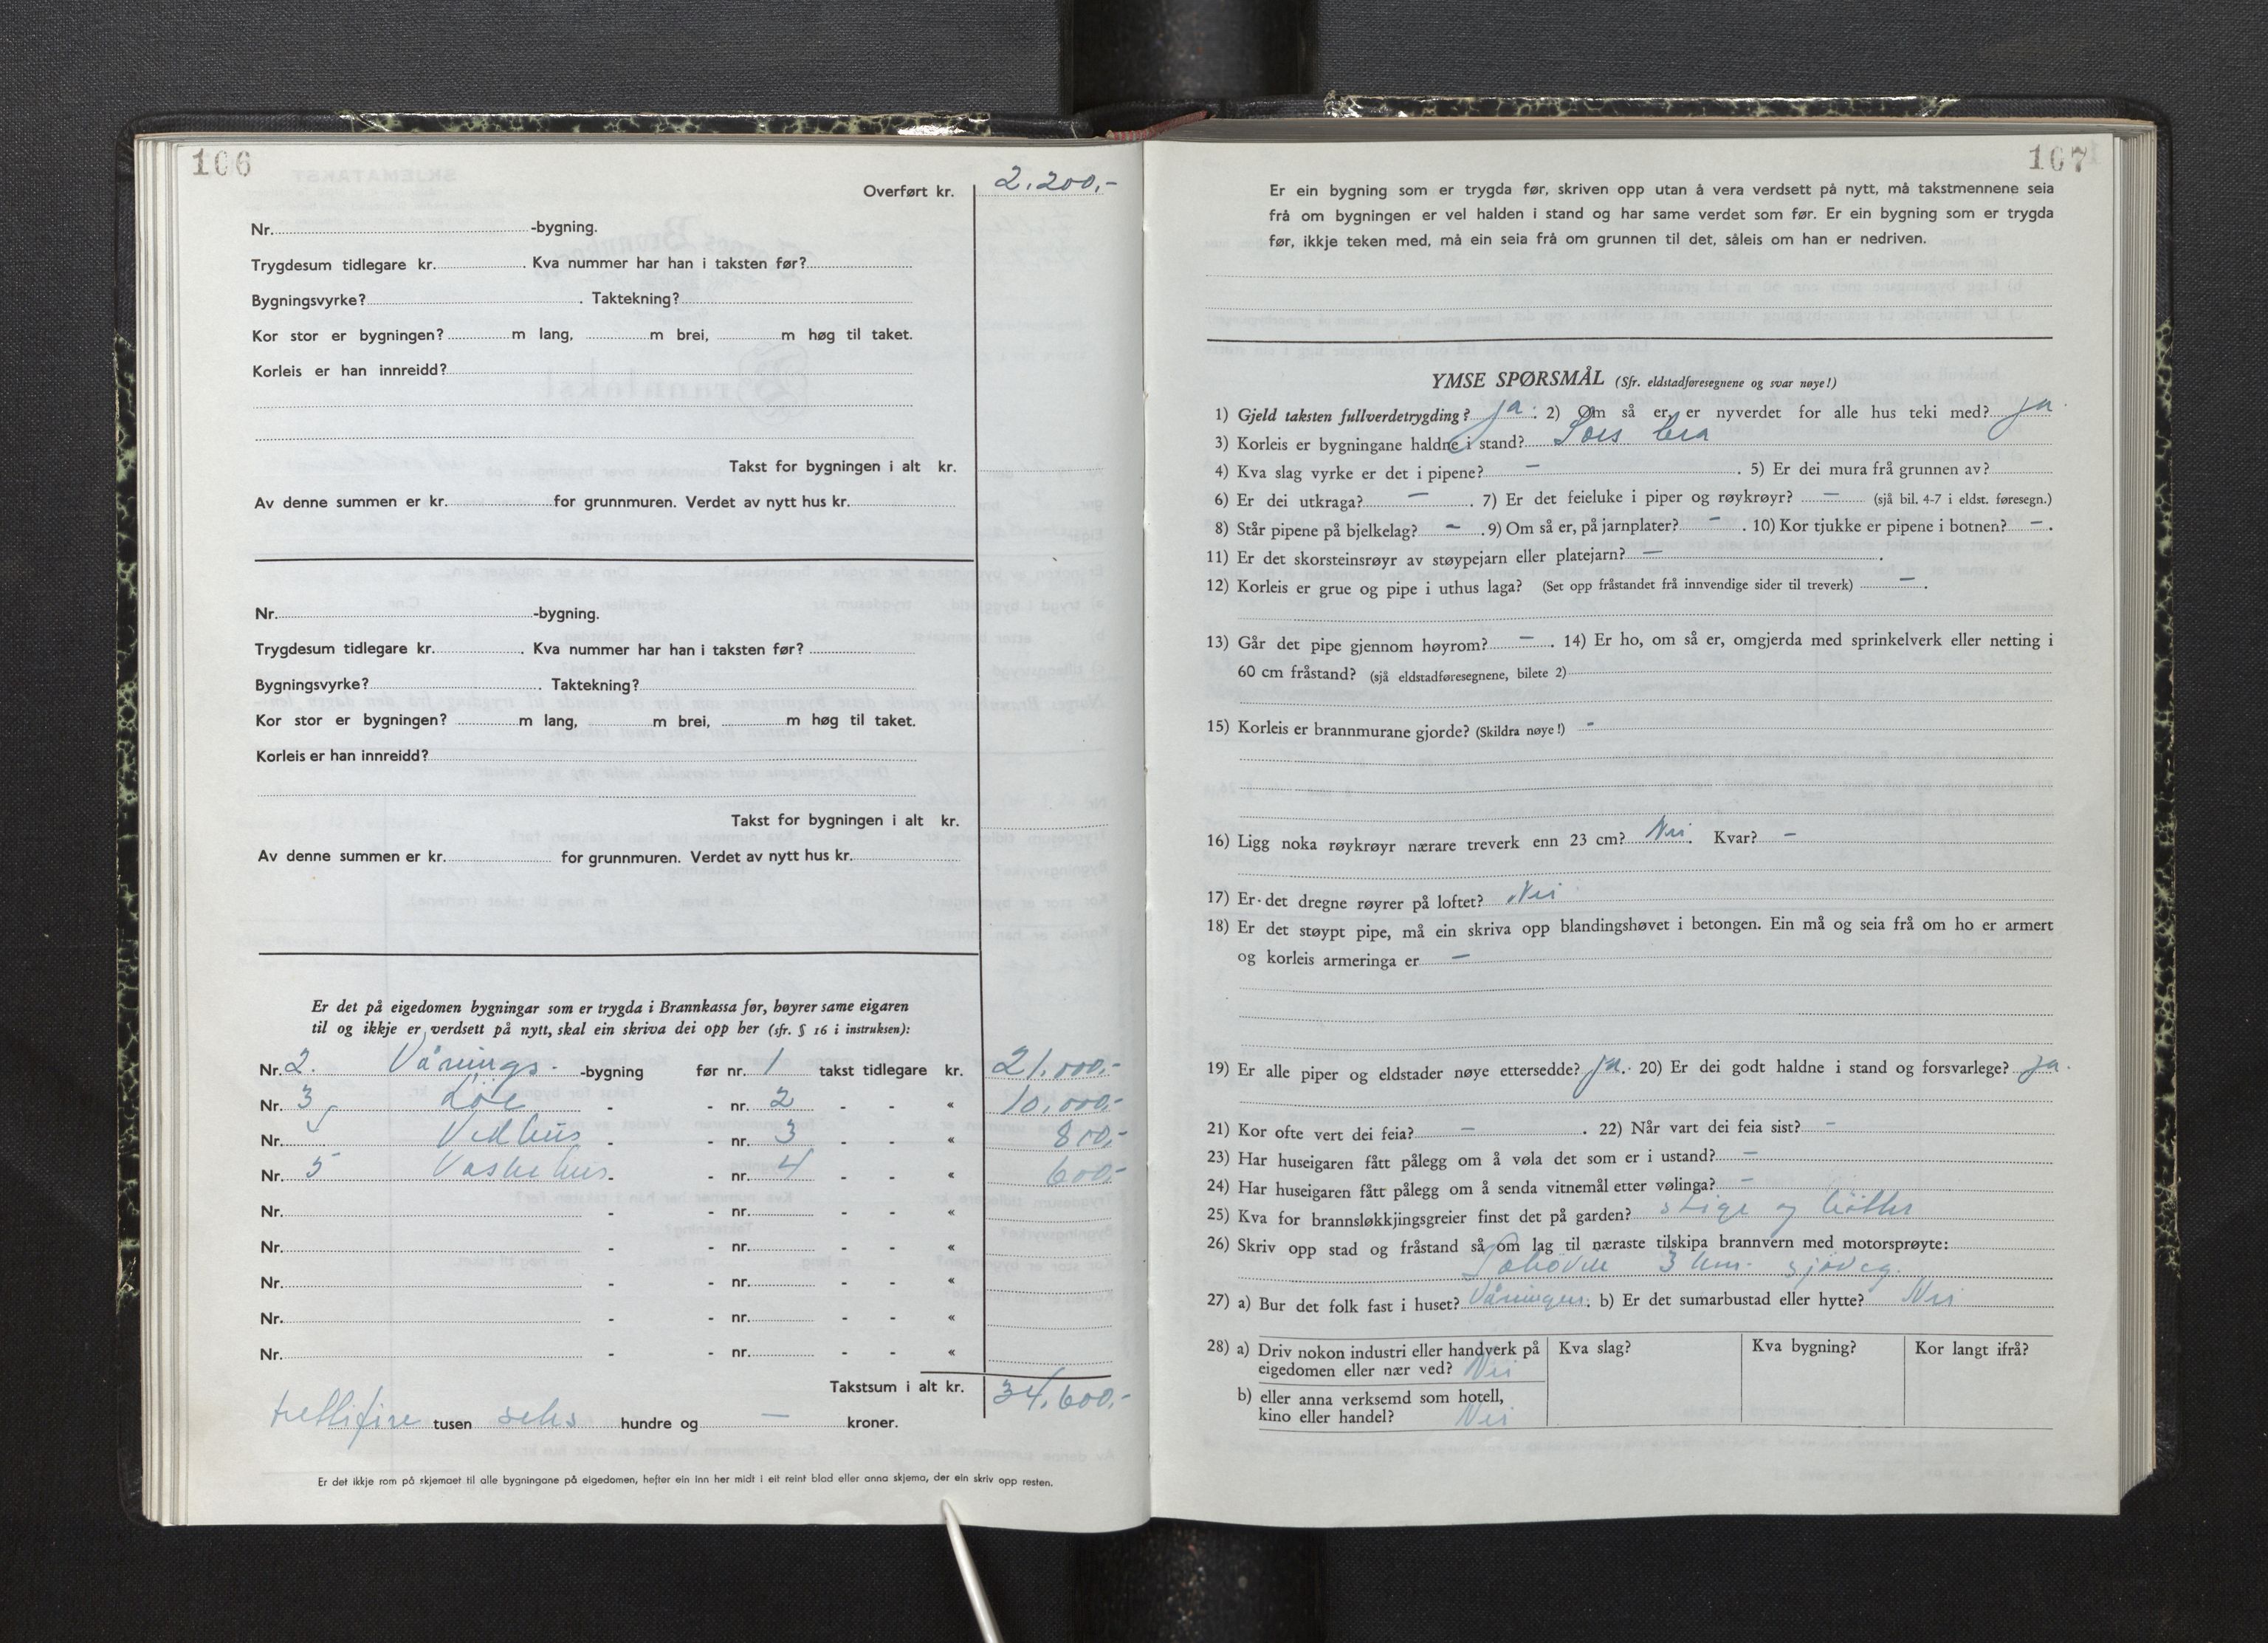 106
Overført kr. 2.200,-
Nr. -bygning.
Trygdesum tidlegare kr. . Kva nummer har han i taksten før?
Bygningsvyrke? . Taktekning?
Kor stor er bygningen? m lang, m brei, m høg til taket.
Korleis er han innreidd?
Takst for bygningen i alt kr.
Av denne summen er kr. for grunnmuren. Verdet av nytt hus kr.
Nr. -bygning.
Trygdesum tidlegare kr. . Kva nummer har han i taksten før?
Bygningsvyrke? . Taktekning?
Kor stor er bygningen? m lang, m brei, m høg til taket.
Korleis er han innreidd?
Takst for bygningen i alt kr.
Av denne summen er kr. for grunnmuren. Verdet av nytt hus kr.
Er det på eigedomen bygningar som er trygda i Brannkassa før, høyrer same eigaren
til og ikkje er verdsett på nytt, skal ein skriva dei opp her (sfr. § 16 i instruksen):
Nr. 2. Vånings- -bygning før nr. 1 takst tidlegare kr. 21.000,-
Nr. 3 Löe - - nr. 2 - - « 10.000,-
Nr. Vedhus - - nr. 3 - - « 800,-
Nr. 5 Vaskehus - - nr. 4 - - « 600,-
Nr. - - nr. - - «
Nr. - - nr. - - «
Nr. - - nr. - - «
Nr. - - nr. - - «
Nr. - - nr. - - «
Takstsum i alt kr. 34.600,-
trettifire tusen seks hundre og — kroner.
Er det ikkje rom på skjemaet til alle bygningane på eigedomen, hefter ein inn her midt i eit reint blad eller anna skjema, der ein skriv opp resten.
107
Er ein bygning som er trygda før, skriven opp utan å vera verdsett på nytt, må takstmennene seia
frå om bygningen er vel halden i stand og har same verdet som før. Er ein bygning som er trygda
før, ikkje teken med, må ein seia frå om grunnen til det, såleis om han er nedriven.
YMSE SPØRSMÅL (Sfr. eldstadføresegnene og svar nøye!)
1) Gjeld taksten fullverdetrygding? ja. 2) Om så er, er nyverdet for alle hus teki med? ja
3) Korleis er bygningane haldne i stand? Søs bra
4) Kva slag vyrke er det i pipene? — . 5) Er dei mura frå grunnen av?
6) Er dei utkraga? — . 7) Er det feieluke i piper og røykrøyr? — (sjå bil. 4-7 i eldst. føresegn.)
8) Står pipene på bjelkelag? - . 9) Om så er, på jarnplater? - . 10) Kor tjukke er pipene i botnen? - .
11) Er det skorsteinsrøyr av støypejarn eller platejarn? — .
12) Korleis er grue og pipe i uthus laga? (Set opp fråstandet frå innvendige sider til treverk) — .
13) Går det pipe gjennom høyrom? — . 14) Er ho, om så er, omgjerda med sprinkelverk eller netting i
60 cm fråstand? (sjå eldstadføresegnene, bilete 2)
15) Korleis er brannmurane gjorde? (Skildra nøye!) -
16) Ligg noka røykrøyr nærare treverk enn 23 cm? Nei. Kvar? —
17) Er det dregne røyrer på loftet? Nei
18) Er det støypt pipe, må ein skriva opp blandingshøvet i betongen. Ein må og seia frå om ho er armert
og korleis armeringa er —
19) Er alle piper og eldstader nøye ettersedde? ja. 20) Er dei godt haldne i stand og forsvarlege? ja.
21) Kor ofte vert dei feia? — . 22) Når vart dei feia sist? -
23) Har huseigaren fått pålegg om å vøla det som er i ustand? —
24) Har huseigaren fått pålegg om å senda vitnemål etter vølinga? -
25) Kva for brannsløkkjingsgreier finst det på garden? stige og bötter
26) Skriv opp stad og fråstand så om lag til næraste tilskipa brannvern med motorsprøyte:
3 km. sjøveg.
27) a) Bur det folk fast i huset? Våningen. b) Er det sumarbustad eller hytte? Nei
28) a) Driv nokon industri eller handverk på
eigedomen eller nær ved? Nei
Kva slag?
Kva bygning?
Kor langt ifrå?
b) eller anna verksemd som hotell,
kino eller handel? Nei